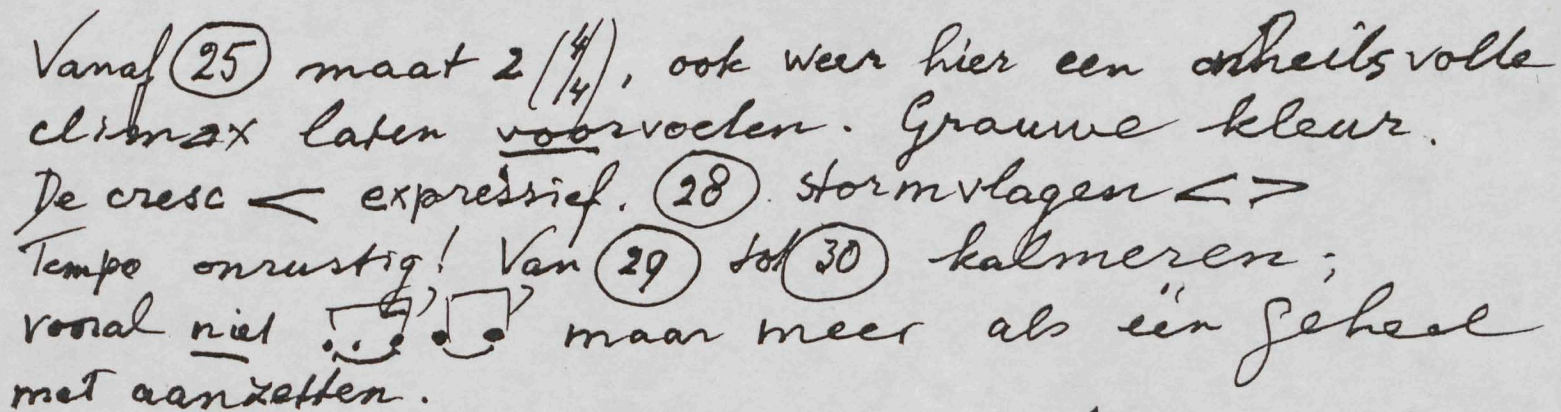 Vanaf 25 maat 2 (4/4), ook weer hier een onheilsvolle
climax laten voorvoelen. Grauwe kleur.
De cresc < expressief. 28 stormvlagen < >
Tempo onrustig! Van 29 tot 30 kalmeren;
vooral niet maar meer als één geheel
met aanzetten.